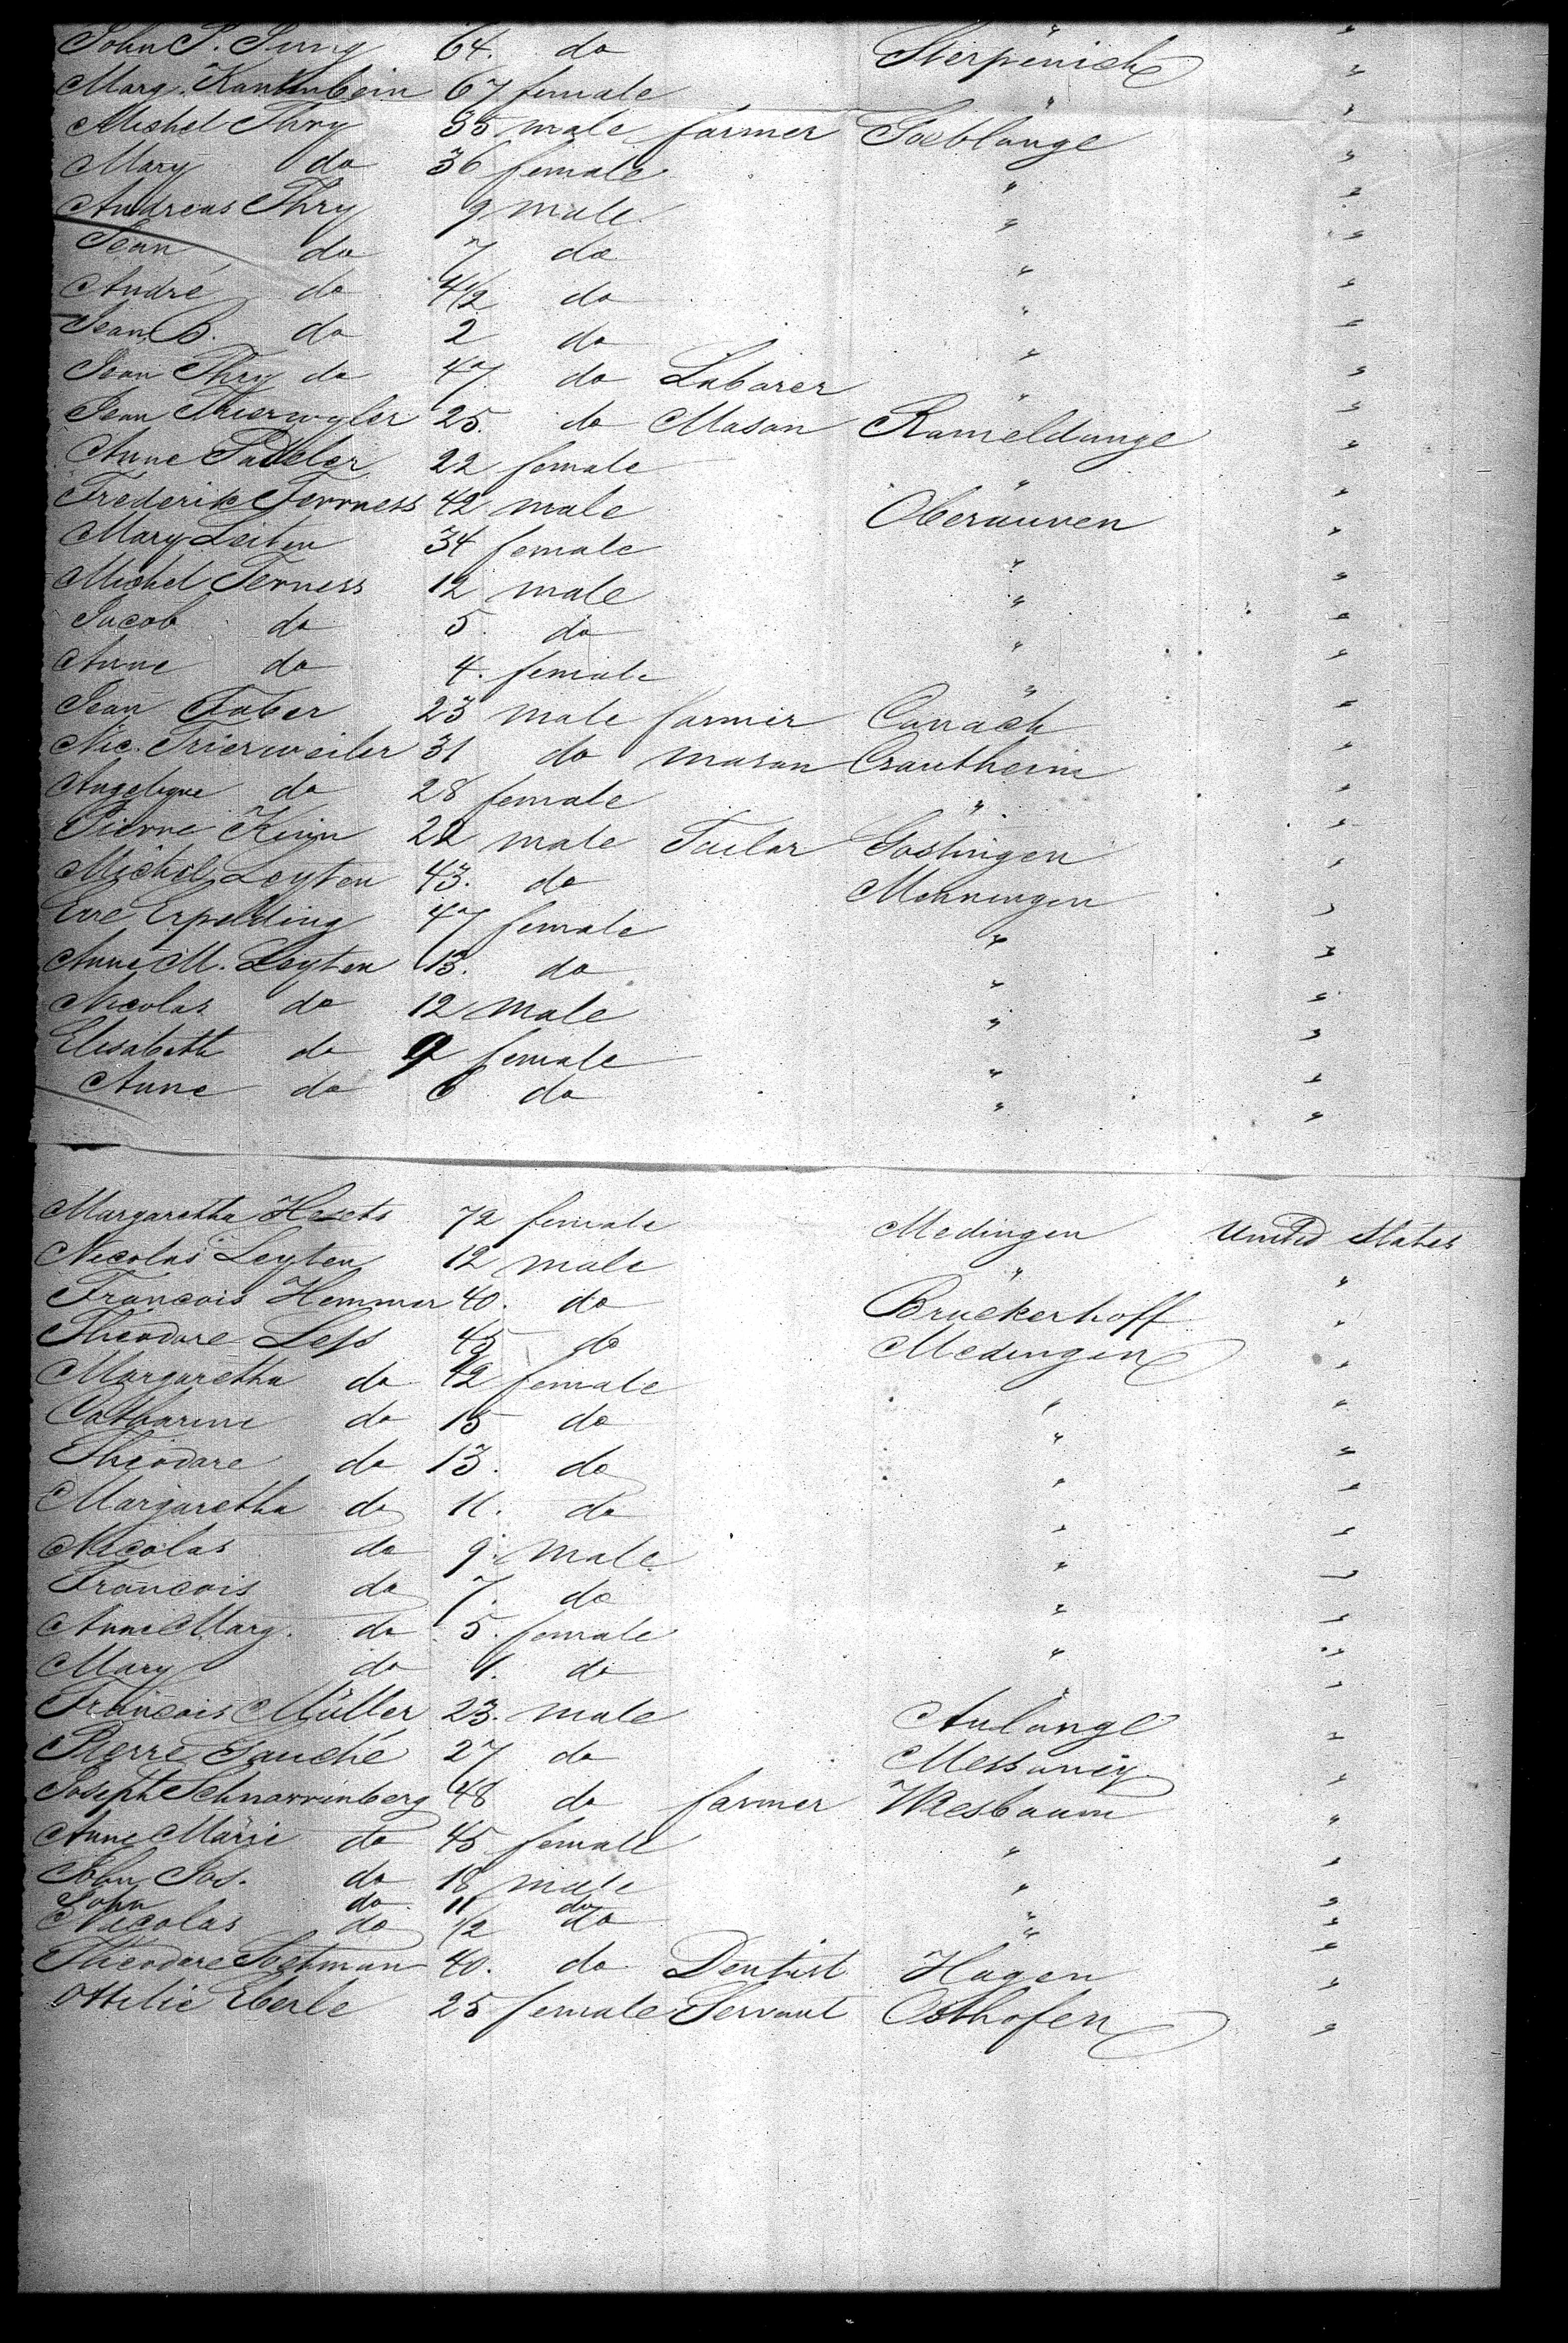 John P. Jung 64. do Sterpenich "
Marg. Kantenbein 67 female " "
Michel Thry 35 male farmer Toeblange "
Mary do 36 female " "
Andreas Thry 9 male " "
Jean do 7 do " "
André do 4 1/2 do " "
Jean B. do 2 do " "
Jean Thry do 47. do Labarer " "
Jean Trierwyler 25. do Mason Rameldange "
Anne 22 female " "
Frederik Ferrness 42 male Oberanven "
Mary Leiten 34 female " "
Michel Ferness 12 male " "
Jacob do 5. do " "
Anne do 4. female " "
Jean Faber 23 male farmer Canach "
Nic. Trierweiler 31 do mason Crautheim "
Angelique do 28 female " "
Pierre 22 male Tailor Gostingen "
Michel Leyten 43. do "
Eve Erpelding 47 female " "
Anne M. Leyten 13. do " "
Nicolas do 12 male " "
Elisabeth do 9 female " "
Anne do 6 do " "
Margaretha 72 female Medingen United States
Nicolas Leyten 12 male " "
Francois Hemmer 40. do Bruckerhoff "
Theodore Less 45 do Medingen "
Margaretha do 42 female " "
Catharine do 15 do " "
Theodore do 13. do " "
Margaretha do 11. do " "
Nicolas do 9. male " "
Francois do 7. do " "
Anne Marg. do 5. female " "
Mary do 1. do " "
Francois Müller 23. male Aulange "
Pierre Gauché 27 do Messancy "
Joseph Schnarrenberg 48 do farmer Wiesbaum "
Anne Marie do 45 female " "
John Jos. do 18 male " "
John do 11 do " "
Nicolas do 1/2 do " "
Theodore 40. do Dentist Hagen "
Ottilie Eberle 25 female Servant Osthofen "